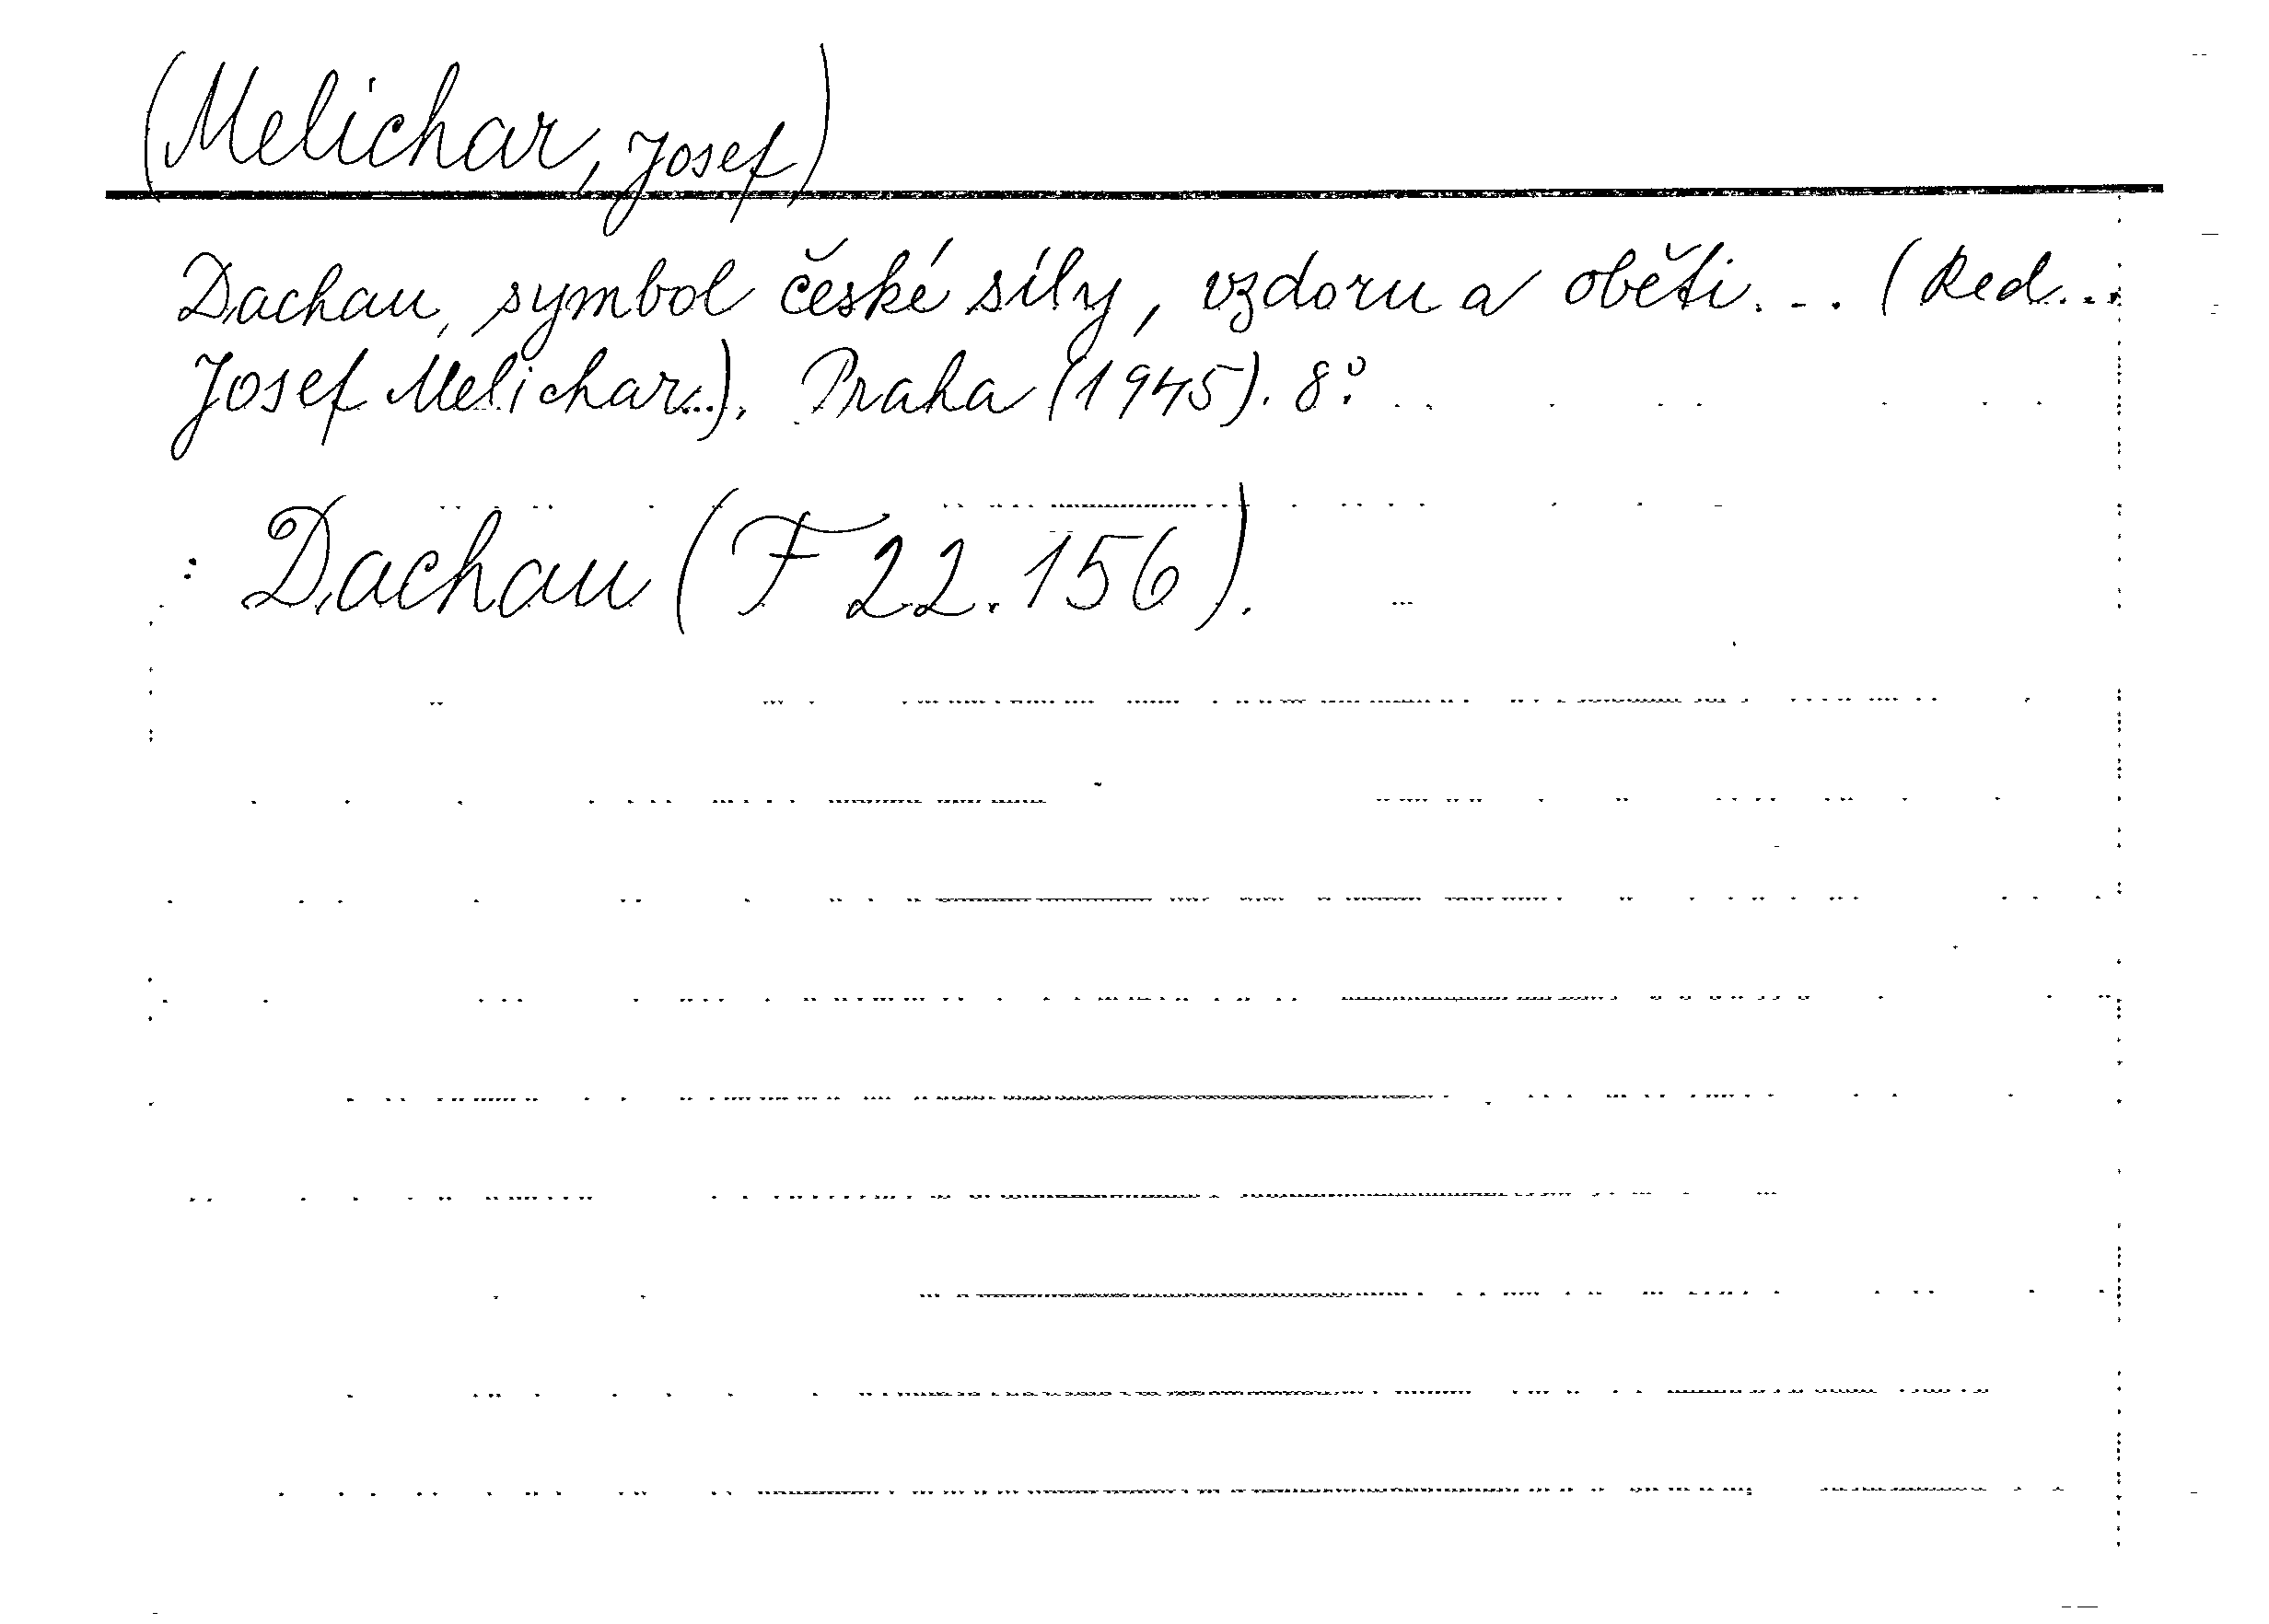 (Melichar, Josef)
Dachau, symbol české síly, vzdoru a oběti... (Red...
Josef Melichar...). Praha (1945). 8°.
: Dachau (F 22.156).